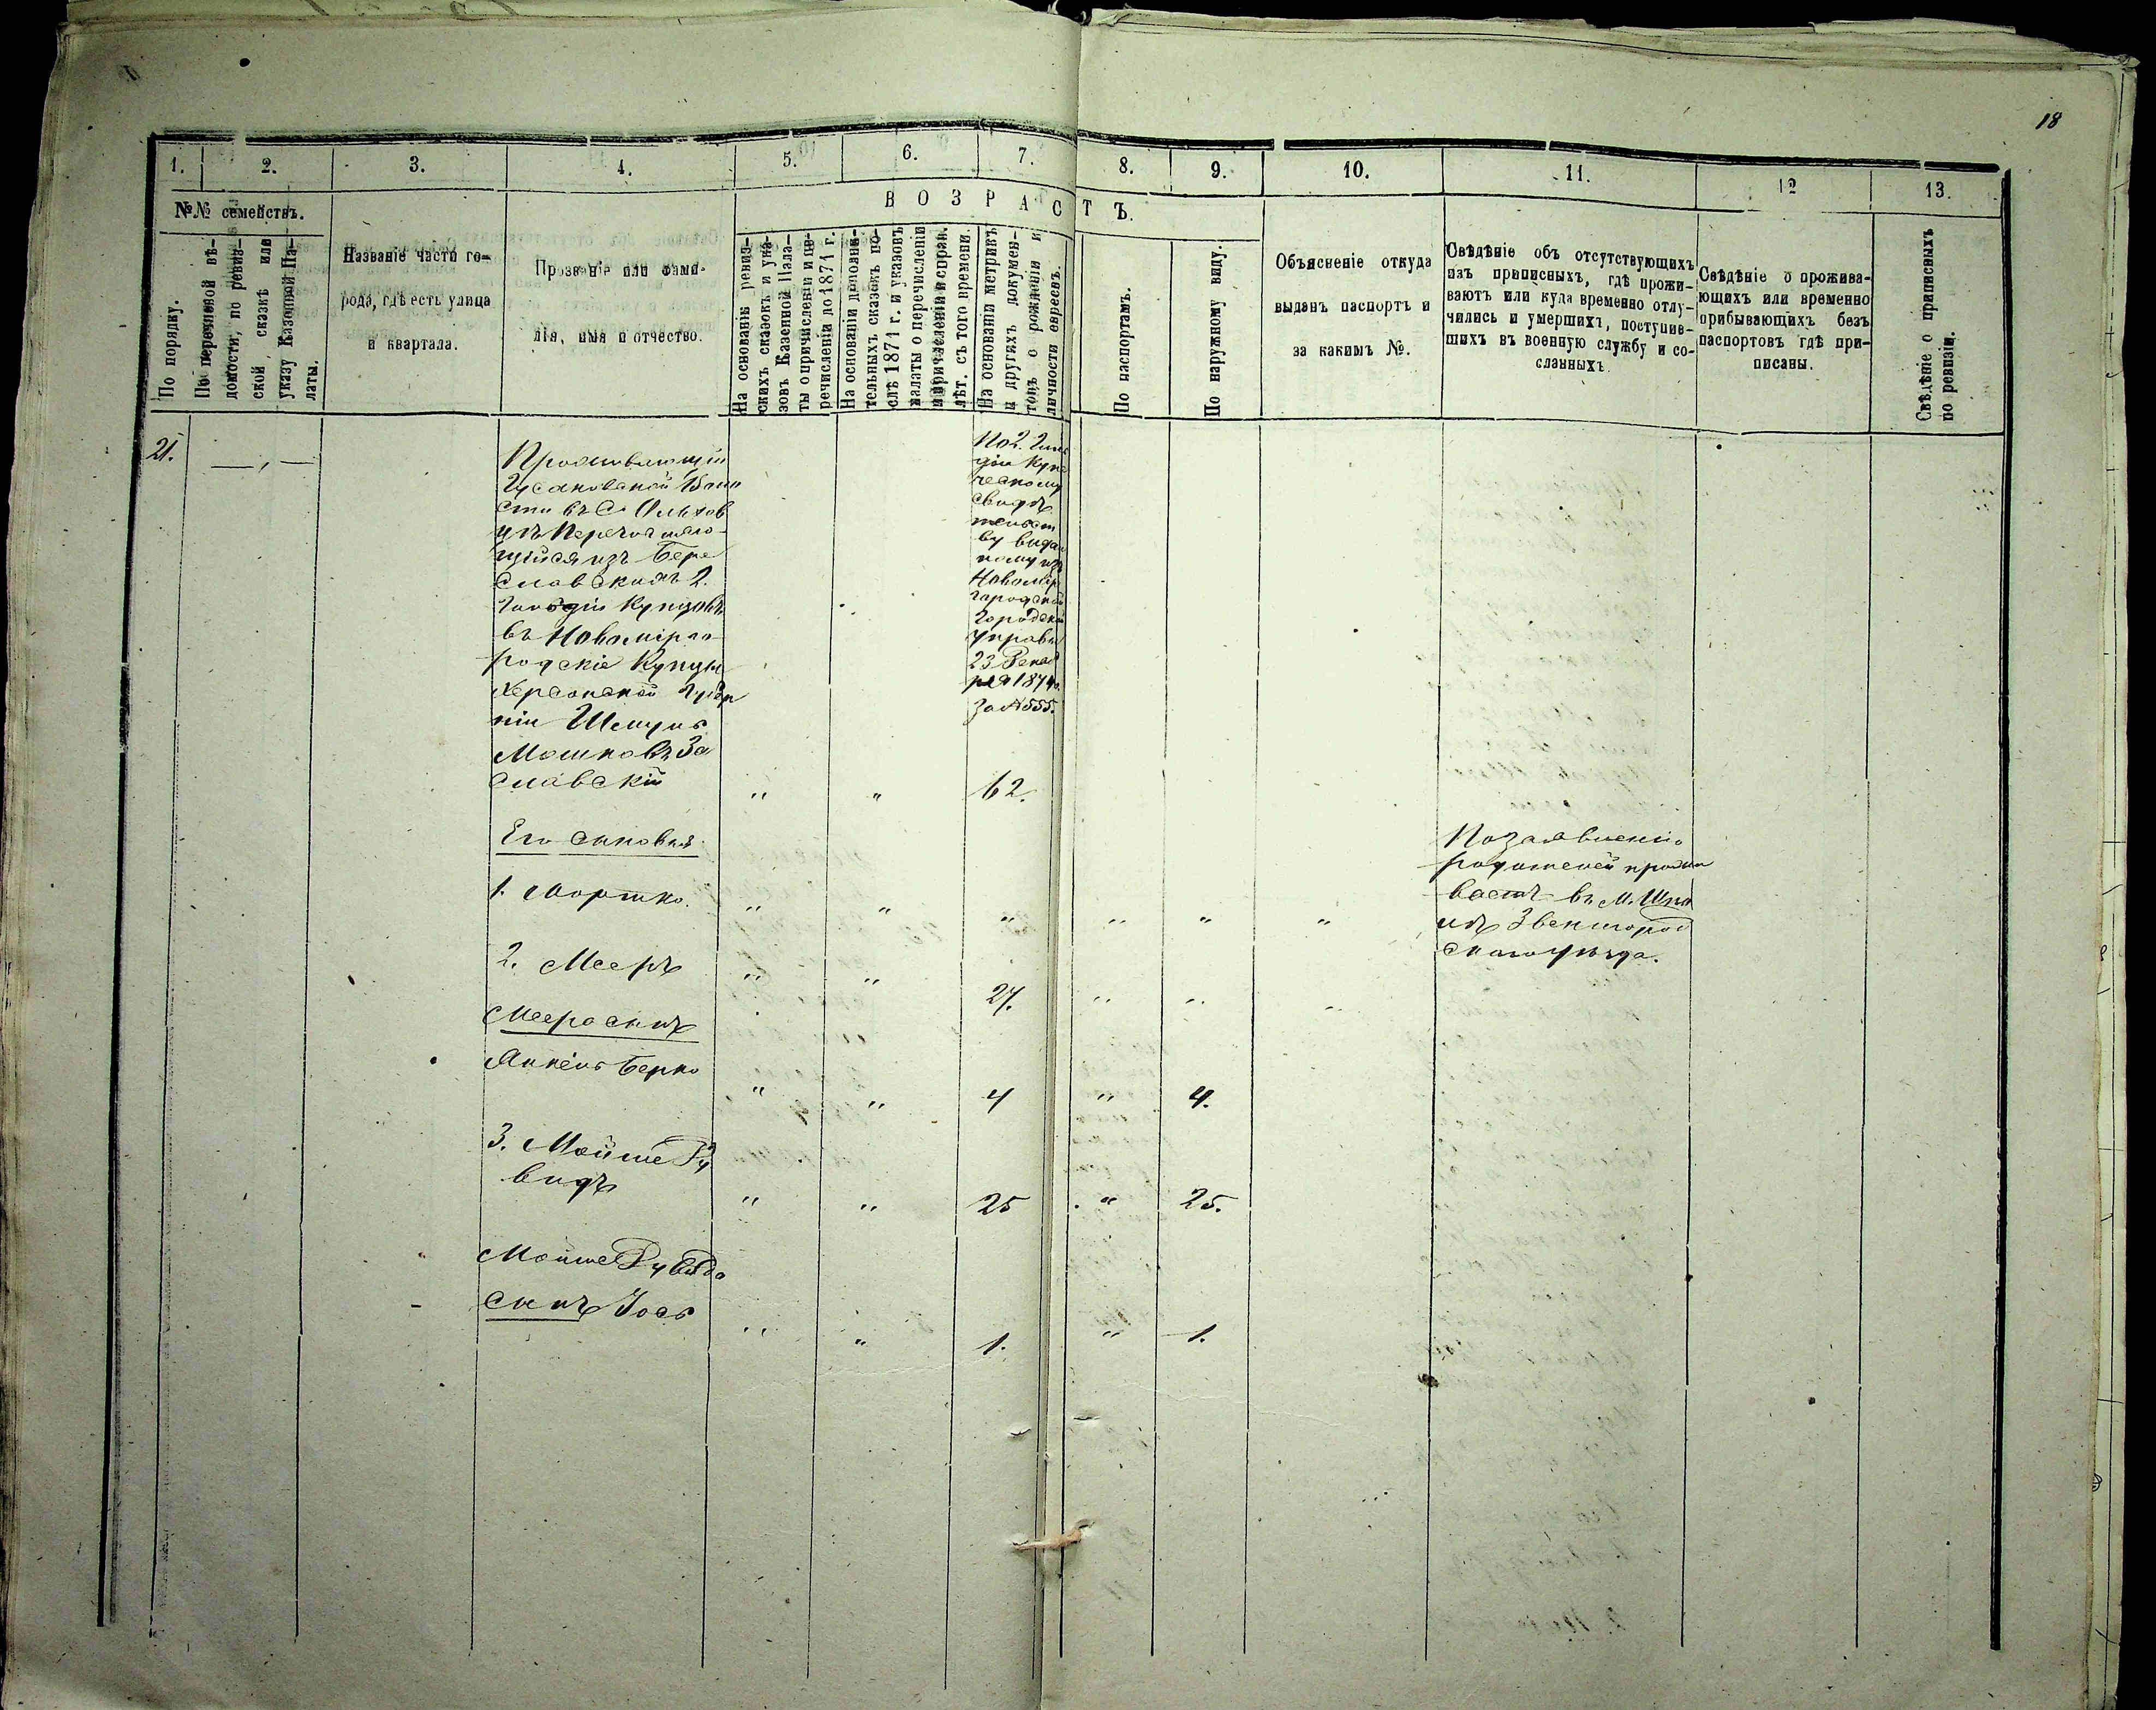 18
1. 2. 3. 4. 5. 6. 7. 8. 9. 10. 11. 12 13.
№№ семействъ.
По порядку.
По перечневой вѣ-
домости, по ревиз-
ской, сказкѣ или
указу Казенной Па-
латы.
Названіе части го-
рода, гдѣ есть улица
и квартала.
Прозваніе или фами-
лія, имя и отчество.
ВОЗРАСТЪ.
На основаніи ревиз-
скихъ сказокъ и ука-
зовъ Казенной Пала-
ты о причисленіи и пе-
речисленіи до 1871 г.
На основаніи дополни-
тельныхъ сказокъ по-
слѣ 1871 г. и указовъ
палаты о перечисленіи
и причисленіи и справ.
лѣт. съ того времени.
На основаніи метрикъ
и другихъ докумен-
товъ о рожденіи и
личности евреевъ.
По паспортамъ.
По наружному виду.
Объясненіе откуда
выданъ паспортъ и
за какимъ №.
Свѣдѣніе объ отсутствующихъ
изъ приписныхъ, гдѣ прожи-
ваютъ или куда временно отлу-
чились и умершихъ, поступив-
шихъ въ военную службу и со-
сланныхъ.
Свѣдѣніе о прожива-
ющихъ или временно
прибывающихъ безъ
паспортовъ гдѣ при-
писаны.
Свѣдѣніе о приписныхъ
по ревизіи.
21.
Проживающій
Гусаковской Воло
сти въ С. Ольхов
цѣ Перечисляю-
щійся изъ Бере
славскихъ 2.
Гильдіи Купцовъ
въ Новомірго-
родскіе Купцы
Херсонской Губер
ніи Шмуль
Мошковъ За
славскій
По 2. Гиль
діи Купе
ческому
свидѣ
тельст
ву выдан
ному изъ
Новомір
городской
Городской
Управы
23 Декаб
ря 1874г.
За №555.
" " 62.
Его сыновья
1. Мортко. " " " " " "
По заявленію
родителей прожи
ваетъ въ М. Шпо
лѣ Звенигород
скаго уѣзда.
2. Мееръ " " 27. " " "
Меера сынъ
Янкель Берко " " 4 " 4.
3. Мойше Ду
видъ " " 25 " 25.
Мойше Дувида
сынъ Іось " " 1. " 1.